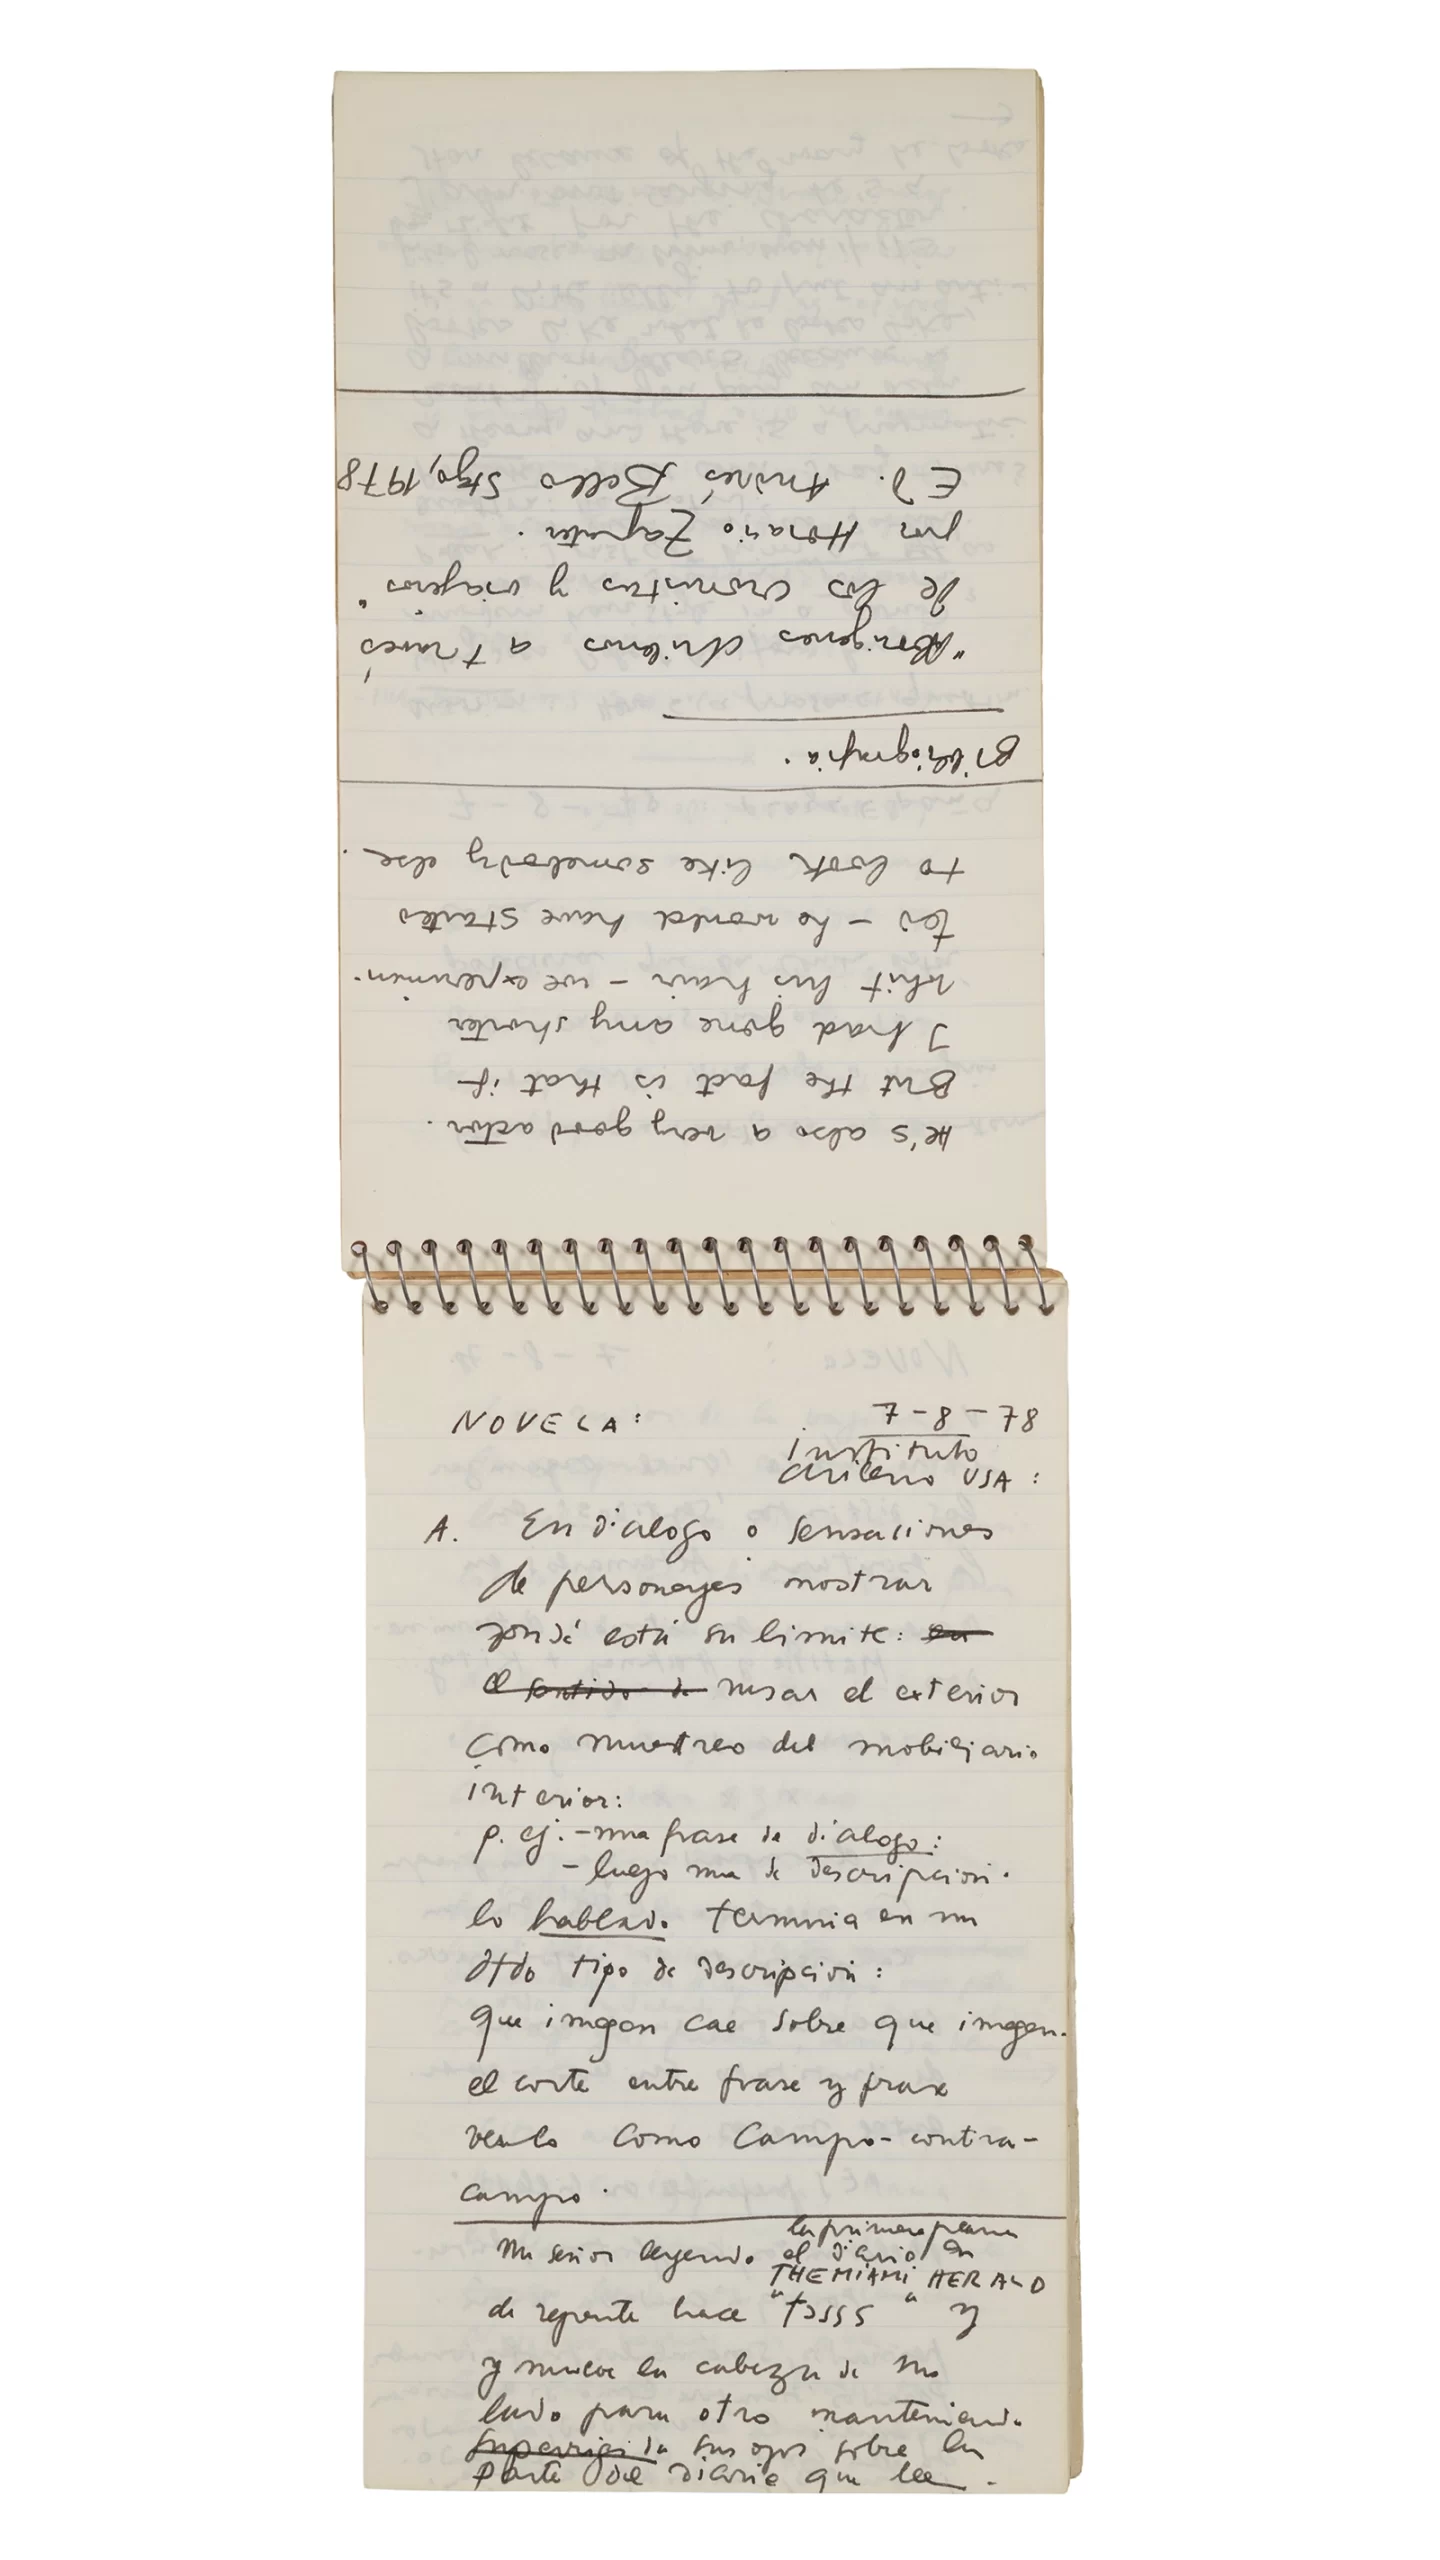 He's also a very good actor.
But the fact is that if
I had gone any shorter
whit his hair – we experimen-
ted – he would have started
to look like somebody else.
Bibliografia.
"Aborigenes chilenos a través
de los cronistas y viajeros"
por Horacio Zapater.
Ed. Andrés Bello Stgo, 1978
NOVELA:
7-8-78
instituto
chileno USA:
A. En dialogo o sensaciones
de personajes mostrar
donde está su limite: en
el sentido de usar el exterior
como muestreo del mobiliario
interior:
p. ej. – una frase de dialogo:
– luego una de descripcion.
lo hablado termina en un
otro tipo de descripción:
que imagen cae sobre que imagen.
el corte entre frase y frase
verlo como campo-contra-
campo.
la primera plana
Un señor leyendo el diario en
THE MIAMI HERALD
de repente hace "tssss" y
y mueve la cabeza de un
lado para otro manteniendo
sus ojos sobre la
parte del diario que lee.